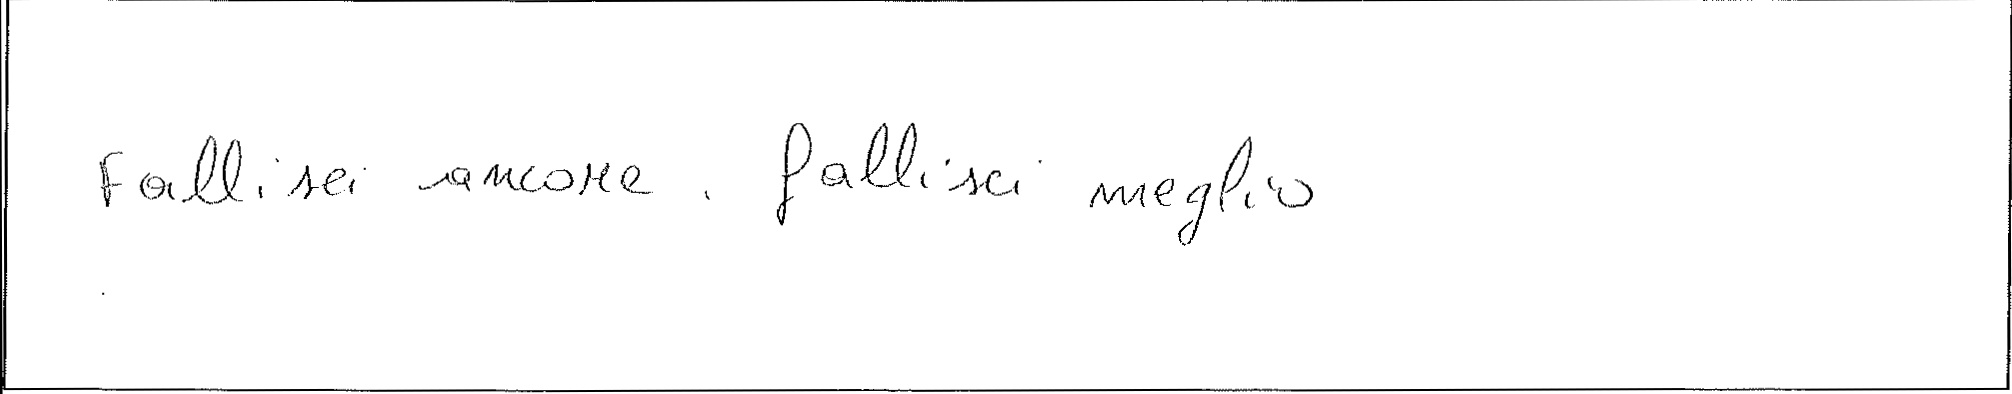 Fallisci ancora. fallisci meglio